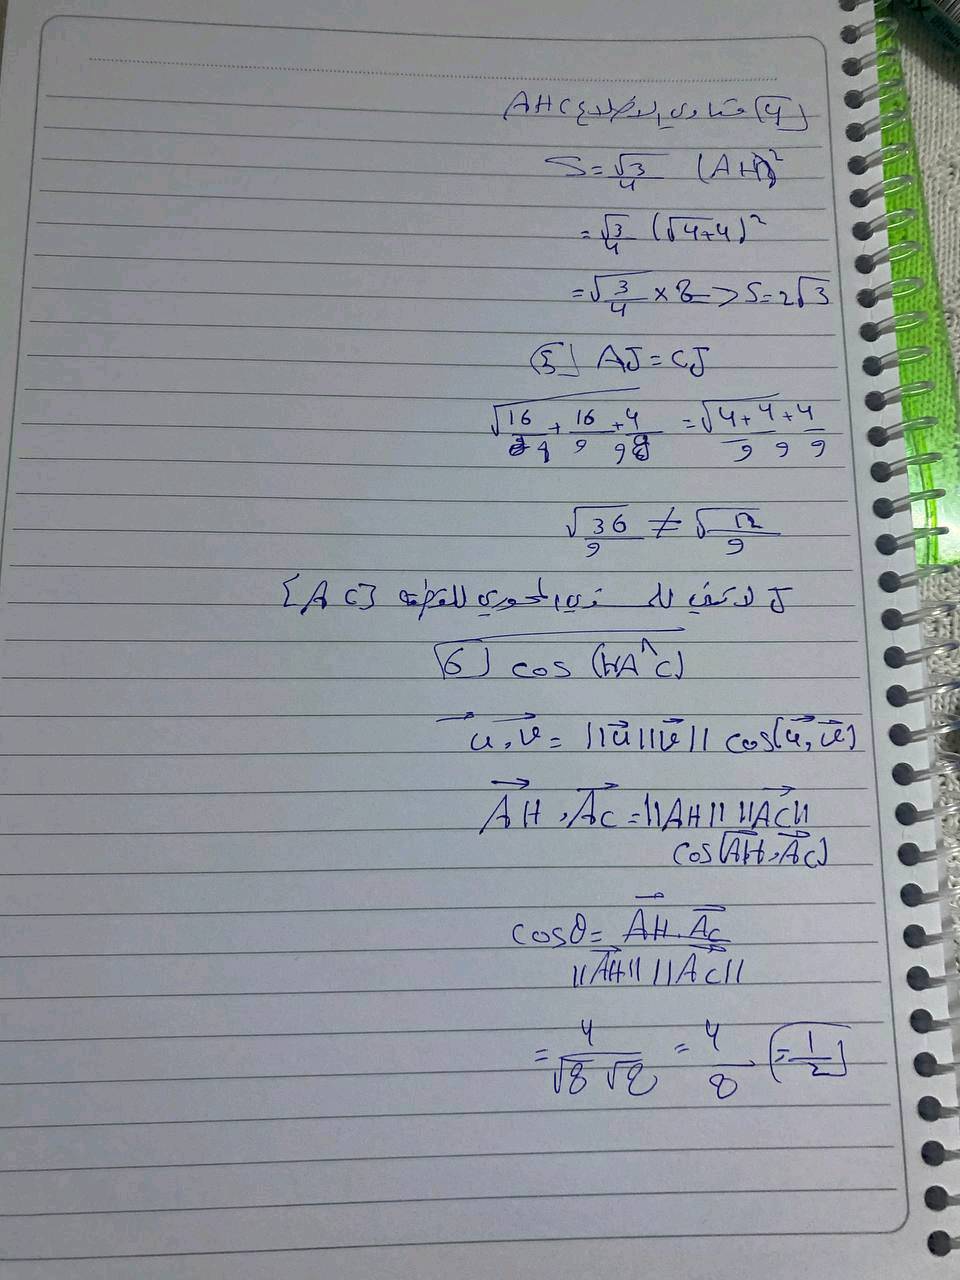 4] AHC متساوي الاضلاع
S = √3/4 (AH)²
= √3/4 (√4+4)²
= √3/4 × 8 => S = 2√3
5] AJ = CJ
√16/9 + 16/9 + 4/9 = √4/9 + 4/9 + 4/9
√36/9 ≠ √12/9
J لا تنتمي للمستوي المحوري للقطعة [AC]
6] cos (HAC)
u⃗ . v⃗ = ||u⃗|| ||v⃗|| cos(u⃗, v⃗)
AH . AC = ||AH|| ||AC||
cos(AH, AC)
cosθ = AH . AC / ||AH|| ||AC||
= 4/√8 √8 = 4/8 = 1/2